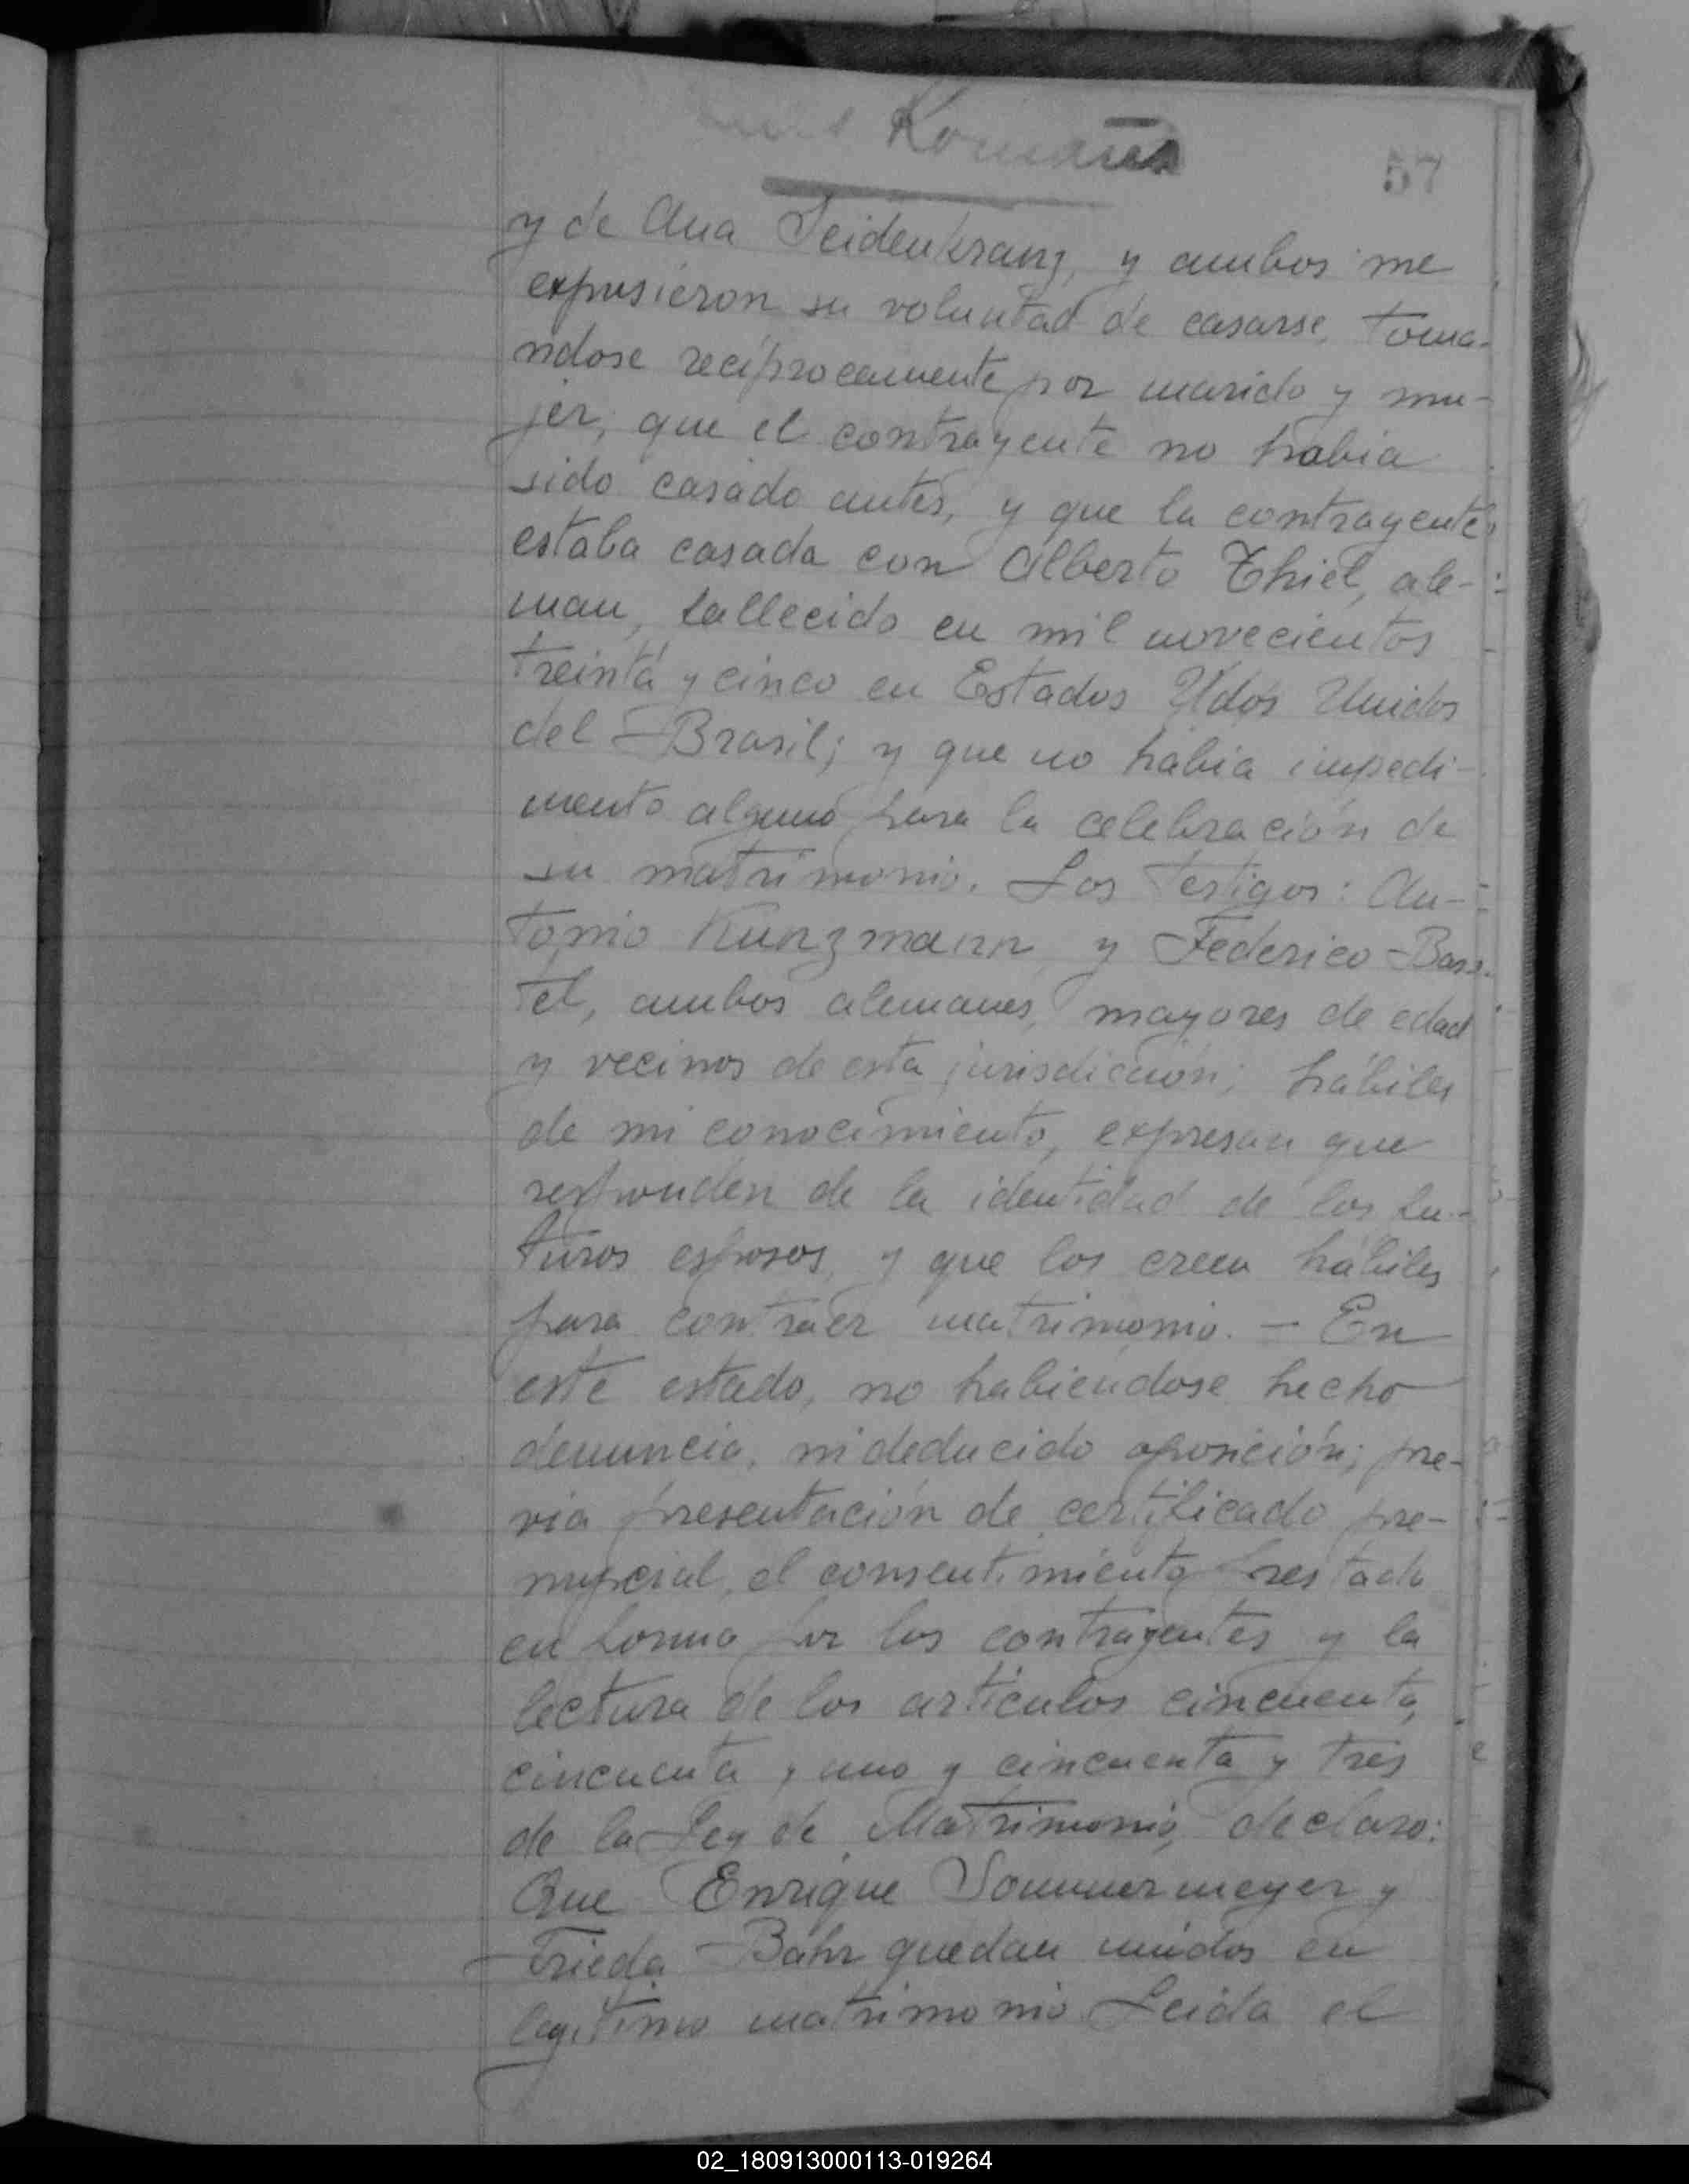 57
y de Ana Seidenkranz, y ambos me
expusieron su voluntad de casarse, toma-
ndose recíprocamente por marido y mu-
jer; que el contrayente no había
sido casado antes, y que la contrayente
estaba casada con Alberto Thiel, ale-
man, fallecido en mil novecientos
treinta y cinco en Estados Udos Unidos
del Brasil; y que no había impedi-
mento alguno para la celebración de
su matrimonio. Los testigos: An-
tonio Kunzmann, y Federico
tel, ambos alemanes, mayores de edad
y vecinos de esta jurisdicción; hábiles
de mi conocimiento, expresan que
responden de la identidad de los fu-
turos esposos, y que los creen hábiles
para contraer matrimonio. - En
este estado, no habiéndose hecho
denuncia, ni deducido oposición; pre-
via presentación de certificado pre-
nupcial, el consentimiento prestado
en forma por los contrayentes y la
lectura de los artículos cincuenta,
cincuenta y uno y cincuenta y tres
de la Ley de Matrimonio, declaro:
Que Enrique Sommermeyer y
Frieda Bahr quedan unidos en
legítimo matrimonio Leida el
02_180913000113-019264